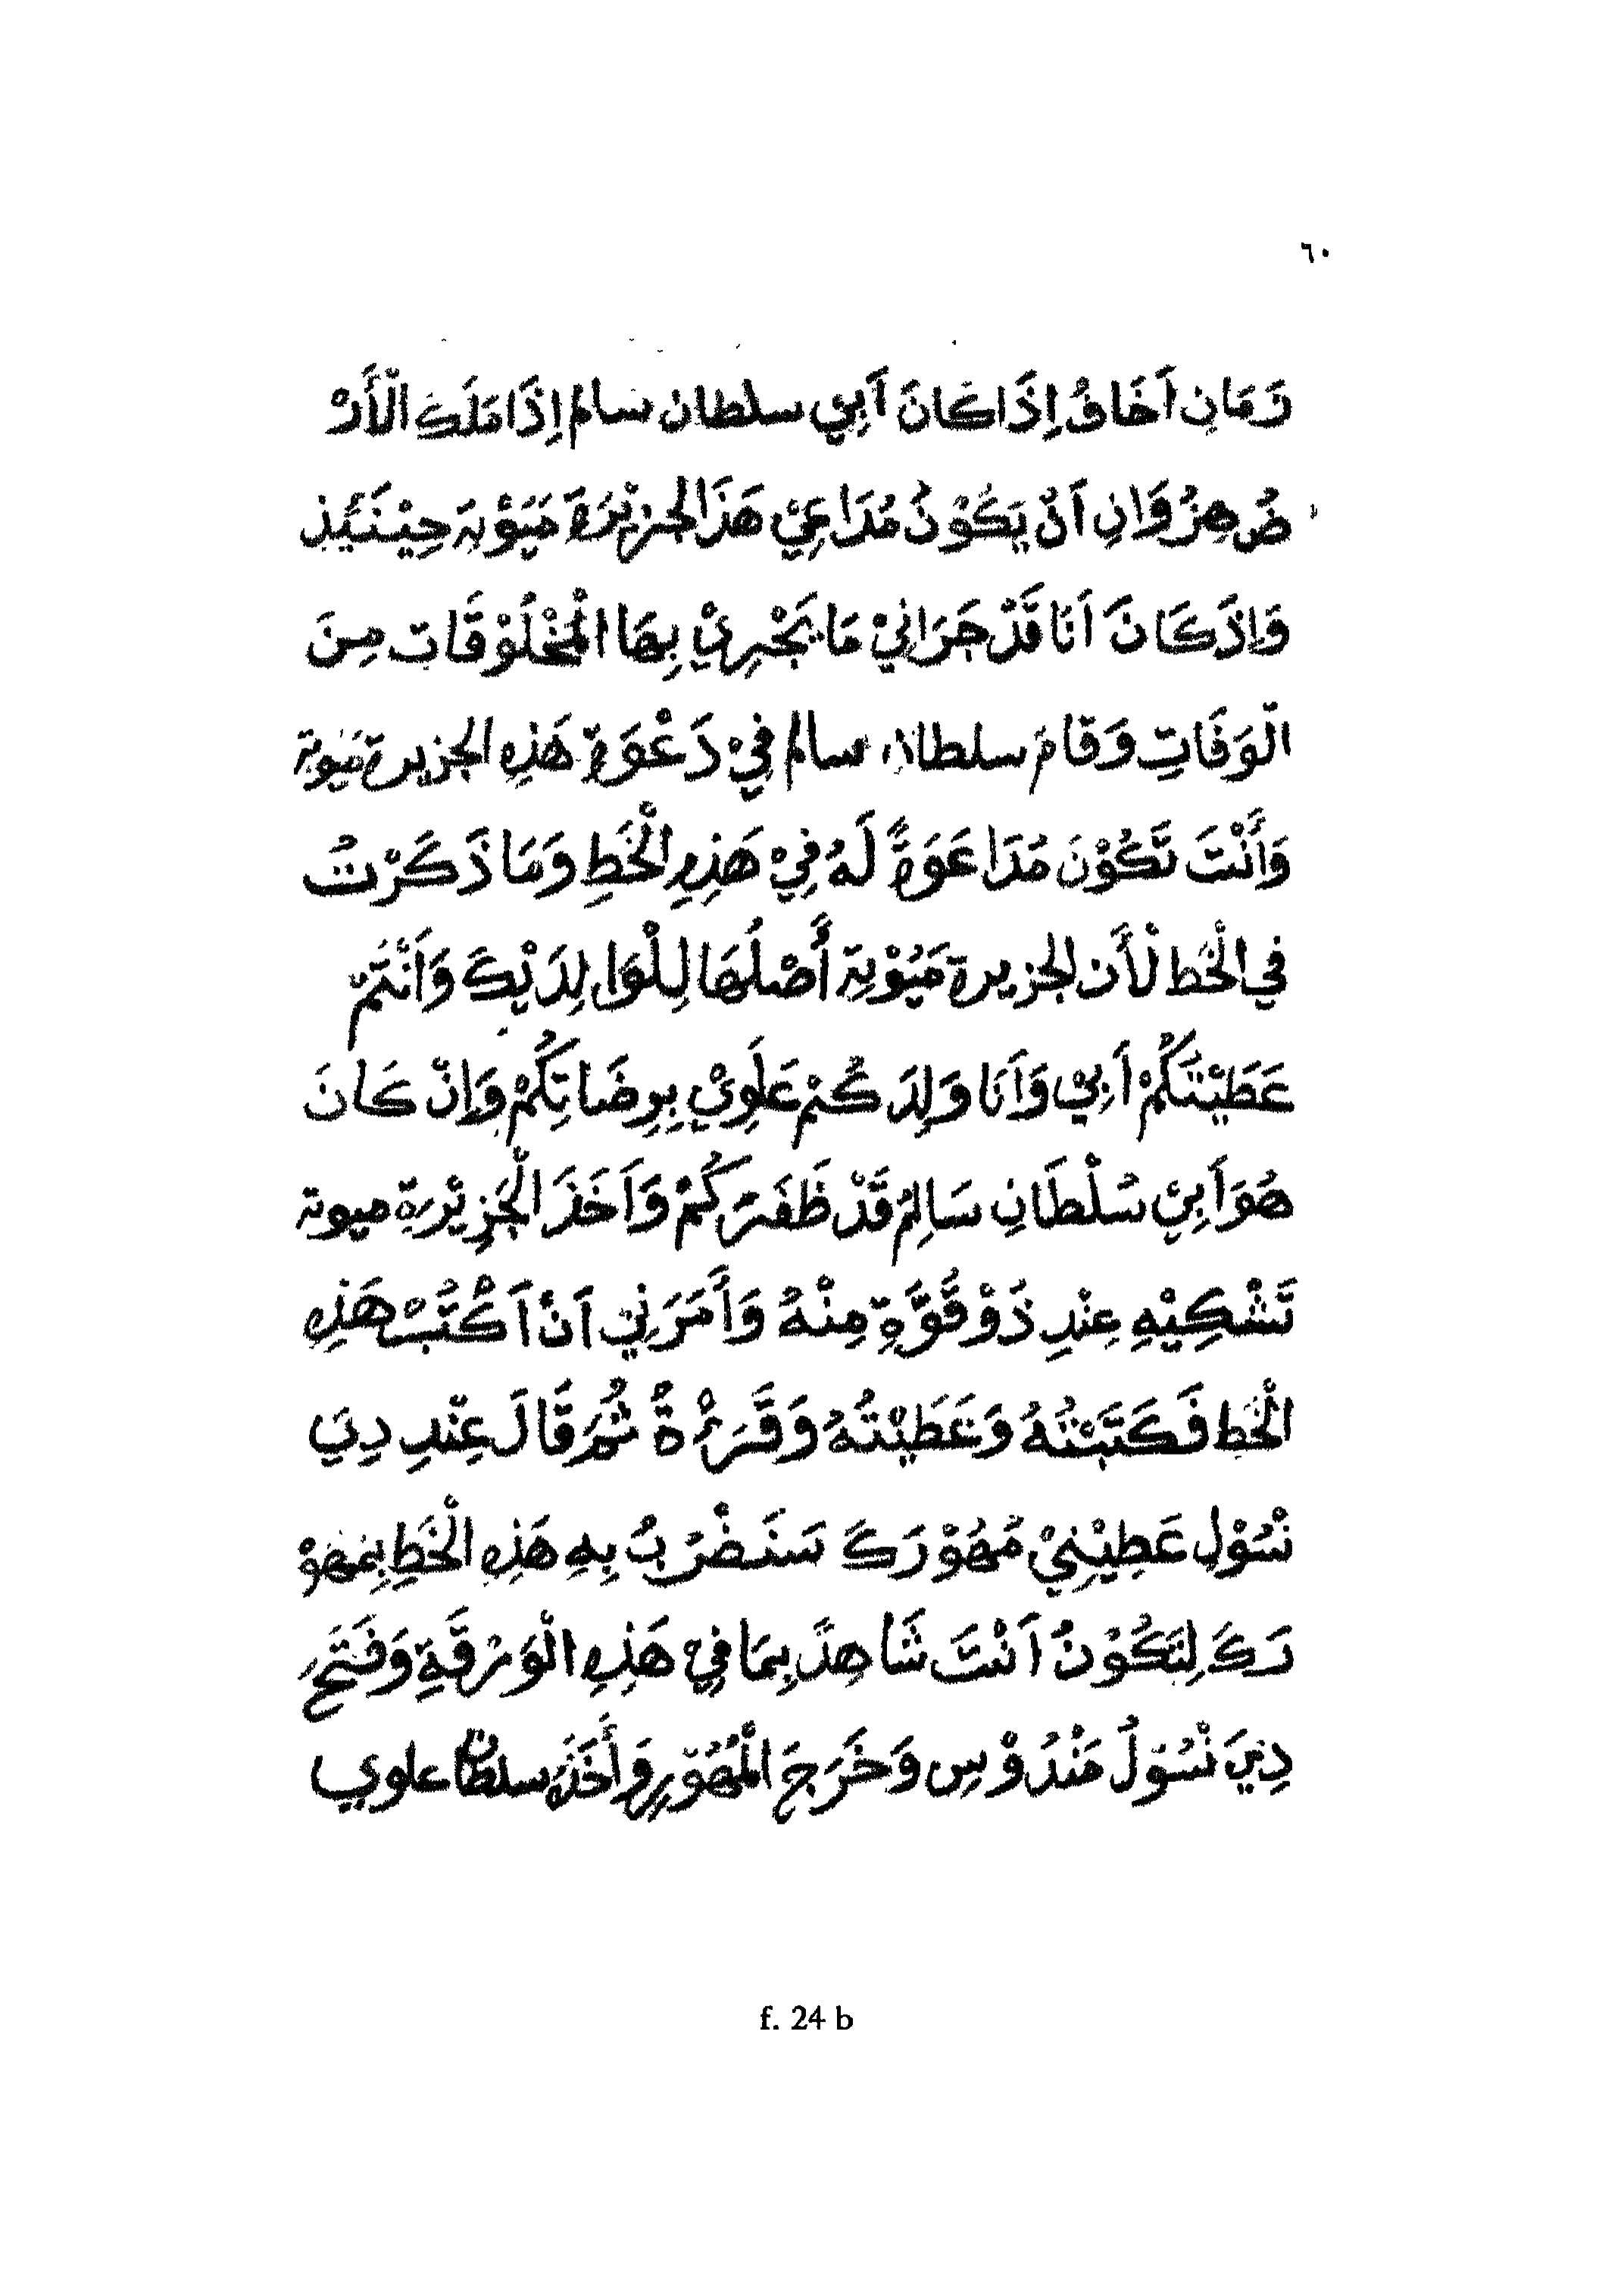 ٦٠
زَمَانِ اَخَافُ اِذَا كَانَ اَبِيْ سلطان سالم اِذَا مَلَكَ الْأَرْ
ضُ هِزُوَانِ اَنْ يَكُوْنُ مُدَاعِيْ هَذَا الجزِيْرَة مَيُوْتَه حِيْنَئِذٍ
وَاِذَ كَانَ اَنَا قَدْ جَرَانِيْ مَا يَجْرِيْ بِهَا الْمَخْلُوْقَاتِ مِنَ
الْوَفَاتِ وَقَامَ سلطان سالم فِيْ دَعْوَةِ هَذِهِ الجزيرة ميوتة
وَأَنْتَ تَكُوْنَ مُدَاعَوَةً لَهُ فِيْ هَذِهِ الْخَطِ وَمَا ذَكَرْتُ
في الْخَط لْأَن الجزيرة مَيُوْتَة أَصْلُهَا لِلْوَالِدَيْكَ وَاَنْتُمْ
عَطَيْتَكُمْ اَبِيْ وَاَنَا وَلِدَكُمْ عَلَوِيْ بِرِضَاتِكُمْ وَاِنْ كَانَ
هُوَ اَبِيْ سُلْطَانِ سَالِمْ قَدْ ظَفَرَكُمْ وَاَخَذَ الْجَزِيْرَة ميوتة
تَشْكِيْهِ عِنْدِ ذُوْ قُوَّةِ مِنْهُ وَأَمَرَنِيْ اَنْ اَكْتُبْ هَذِهِ
الْخَطِ فَكَتَبْتُهُ وَعَطَيْتُهُ وَقَرَءْةُ ثُمَّ قَالَ عِنْدِ دِيَ
نْسُوْلِ عَطِيْنِيْ مُهُوْرَكَ سَنَضْرَبُ بِهِ هَذِهِ الْخَطِ بِمُهُوْ
رَكَ لِتَكُوْنُ اَنْتَ شَاهِدً بِمَا فِيْ هَذِهِ الْوَرْقَةِ وَفَتَحَ
دِيَ نْسُوْلُ مَنْدُوْسِ وَخَرَجَ الْمُهُوْرِ وَأَخَذَهُ سلطان علوي
f. 24 b